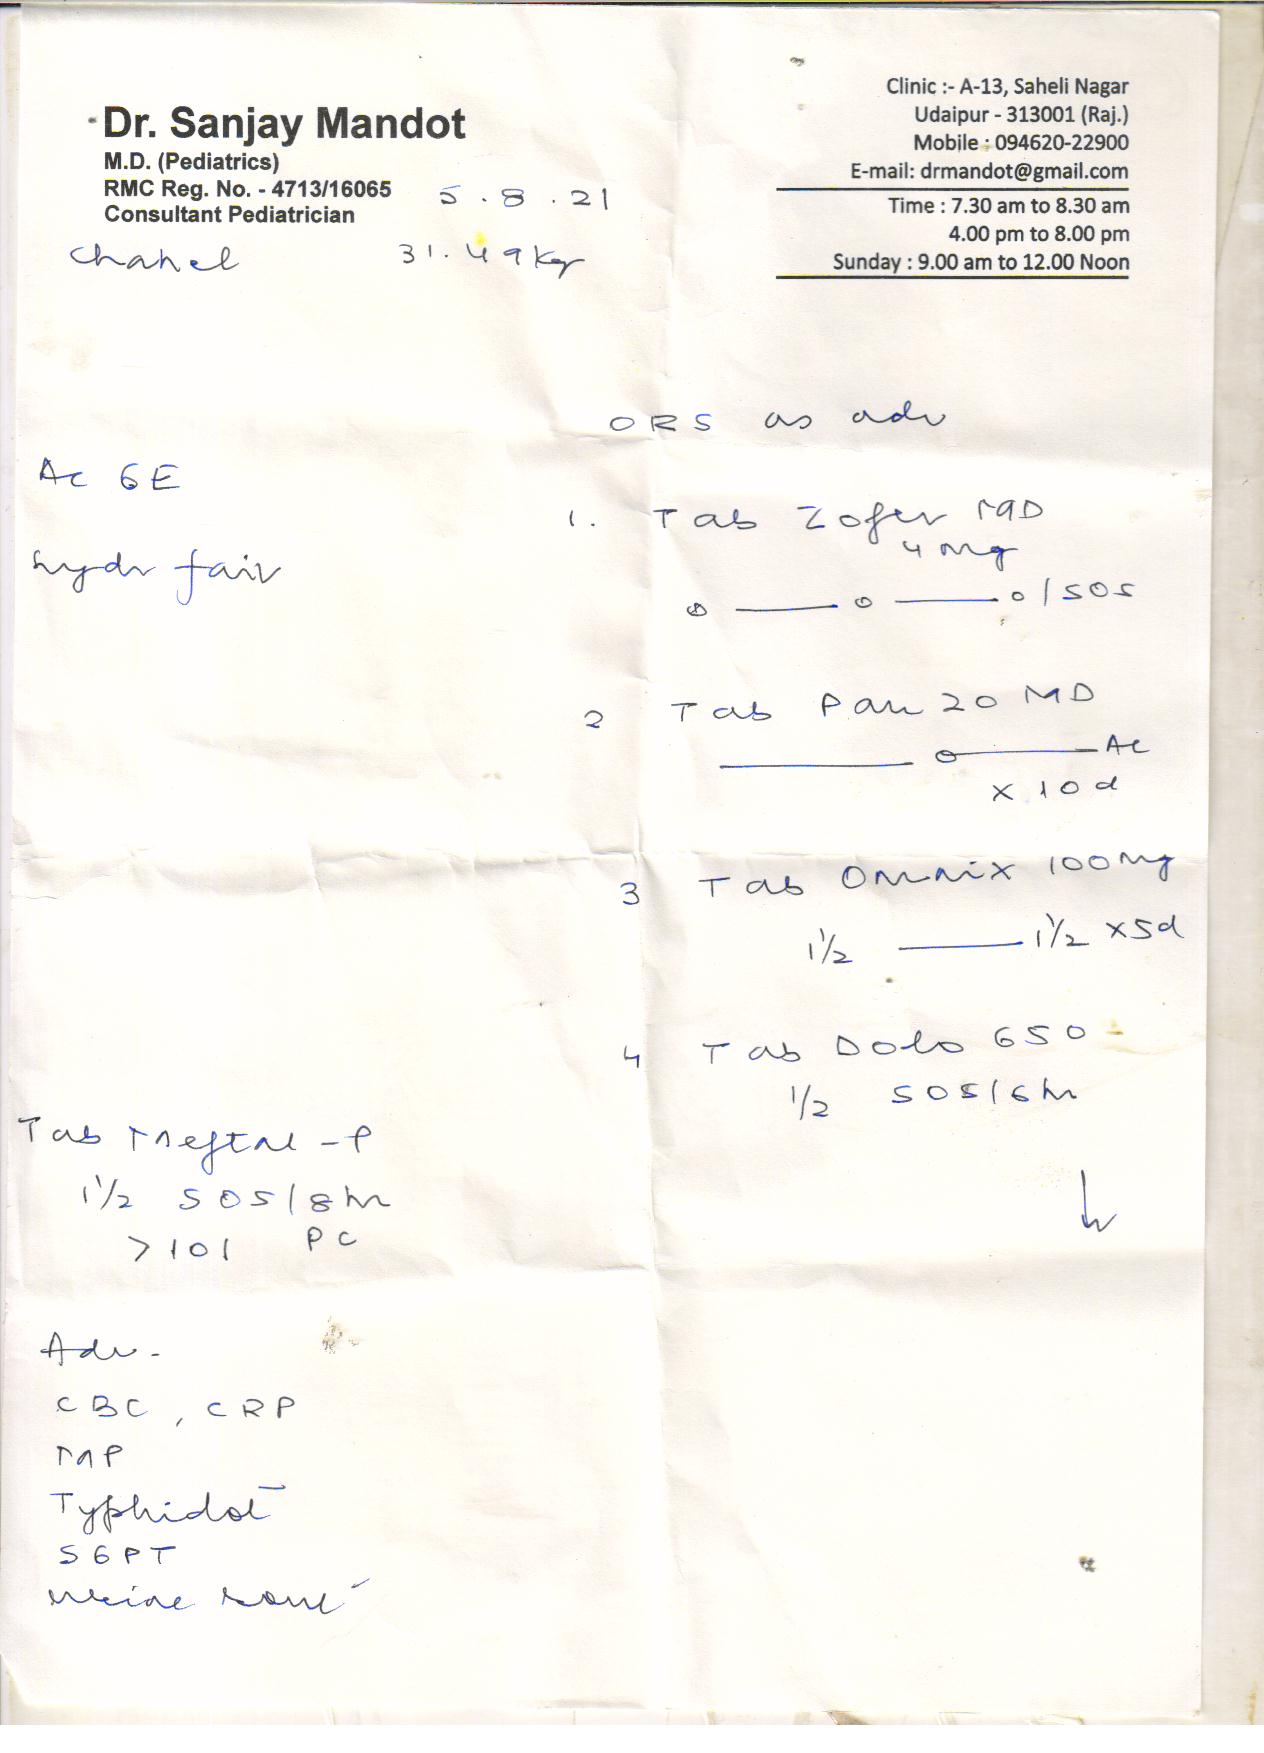 Dr. Sanjay Mandot
M.D. (Pediatrics)
RMC Reg. No. - 4713/16065
Consultant Pediatrician
Clinic :- A-13, Saheli Nagar
Udaipur - 313001 (Raj.)
Mobile : 094620-22900
E-mail: drmandot@gmail.com
Time : 7.30 am to 8.30 am
4.00 pm to 8.00 pm
Sunday : 9.00 am to 12.00 Noon
5.8.21
Chahel 31.49 Kg
Ac GE
hydr fair
ORS as adv
1. Tab Zofer MD
4 mg
o — o — o / SOS
2 Tab Pan 20 MD
— o — Ac
x 10 d
3 Tab Omnix 100 mg
1 1/2 — 1 1/2 x 5d
4 Tab Dolo 650
1/2 SOS / 6 hr
Tab Meftal - P
1 1/2 SOS / 8 hr
> 101 PC
Adv -
CBC, CRP
MP
Typhidot
SGPT